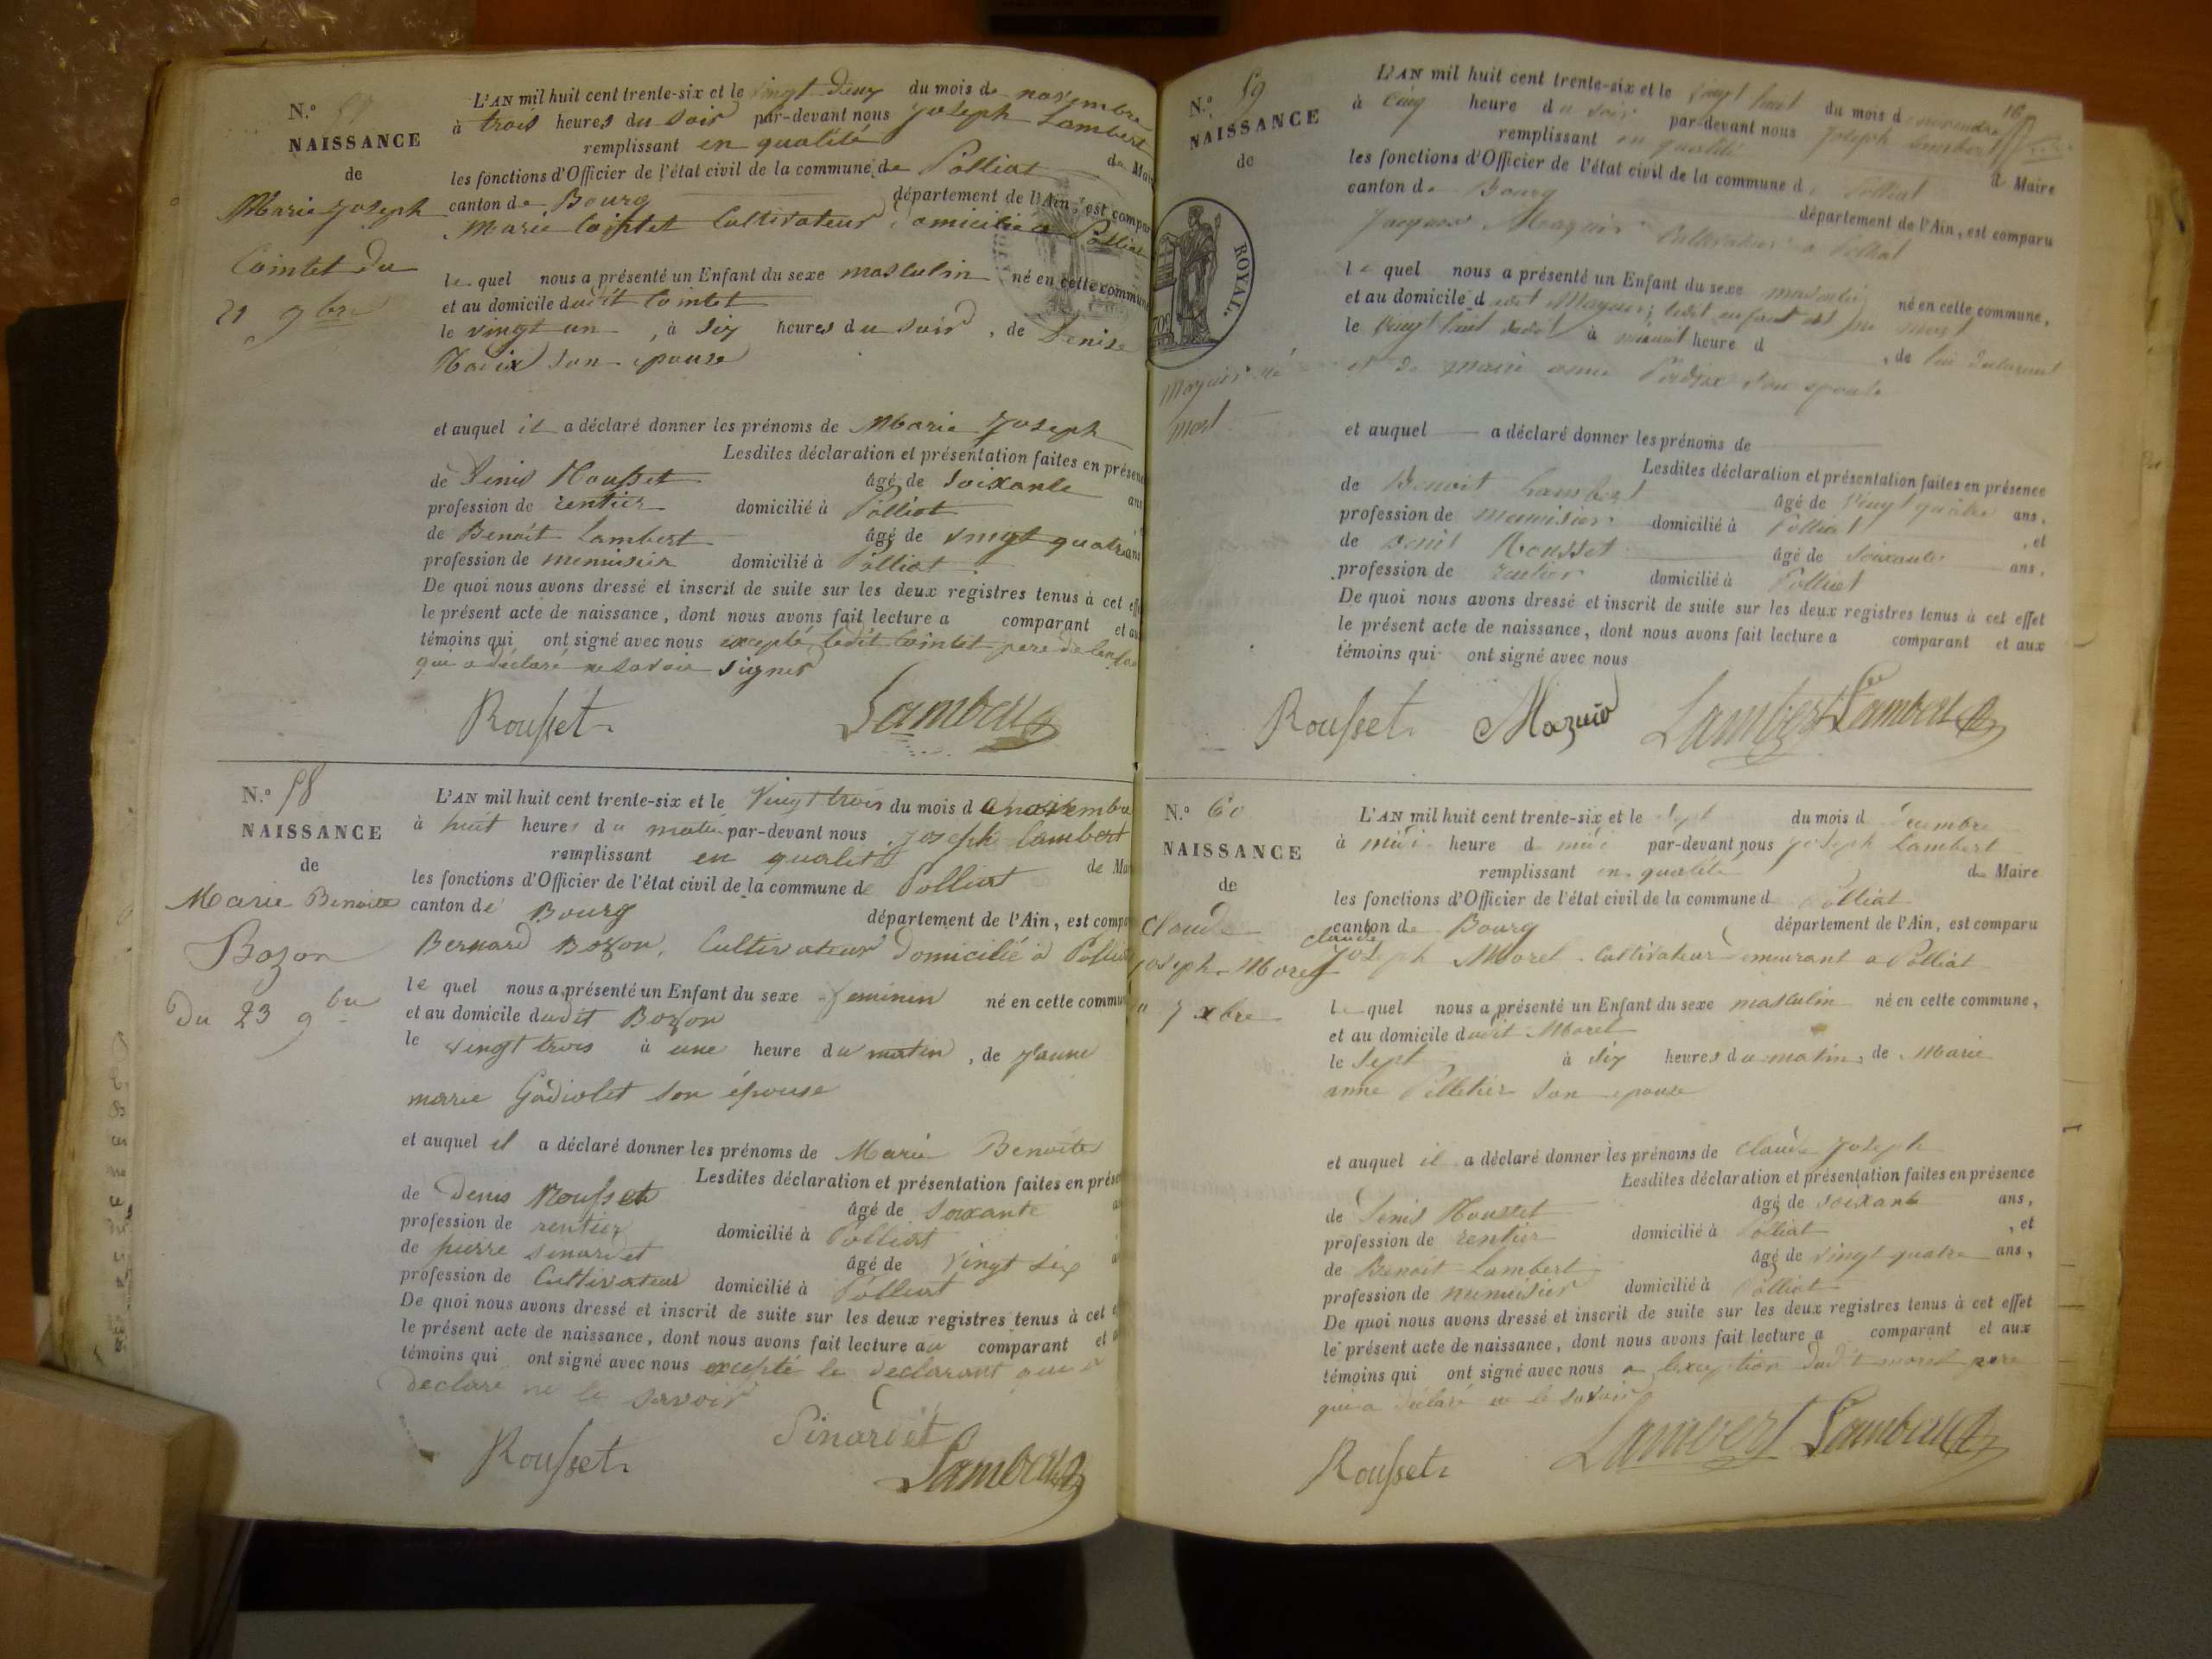 N.º
NAISSANCE
de
Marie Joseph
Cointet du
21 9bre
L'AN mil huit cent trente-six et le vingt deux du mois de novembre
à trois heures du soir par-devant nous Joseph Lambert
remplissant en qualité de Mai
les fonctions d'Officier de l'état civil de la commune de Polliat
canton de Bourg département de l'Ain, est compar
Marie Cointet Cultivateur domicilié à Polliat
le quel nous a présenté un Enfant du sexe masculin né en cette commun
et au domicile dudit Cointet
le vingt un, à six heures du soir, de Denise
son epouse
et auquel il a déclaré donner les prénoms de Marie Joseph
Lesdites déclaration et présentation faites en présen
de Denis Rousset âgé de soixante ans
profession de rentier domicilié à Polliat
de Benoit Lambert âgé de vingt quatre ans
profession de menuisier domicilié à Polliat
De quoi nous avons dressé et inscrit de suite sur les deux registres tenus à cet eff
le présent acte de naissance, dont nous avons fait lecture a comparant et au
témoins qui ont signé avec nous excepté ledit Cointet pere de lenfan
qui a déclaré ne savoir signer
Rousset Lambert
N.º 58
NAISSANCE
de
Marie Benoite
Bozon
du 23 9bre
L'AN mil huit cent trente-six et le vingt trois du mois de novembre
à huit heures du matin par-devant nous Joseph Lambert
remplissant en qualité de Mai
les fonctions d'Officier de l'état civil de la commune de Polliat
canton de Bourg département de l'Ain, est compar
Bernard Bozon, Cultivateur domicilié à Polliat
le quel nous a présenté un Enfant du sexe feminin né en cette commun
et au domicile dudit Bozon
le vingt trois à une heure du matin, de Jeanne
marie Gadiolet son épouse
et auquel il a déclaré donner les prénoms de Marie Benoite
Lesdites déclaration et présentation faites en prése
de Denis Rousset âgé de soixante
profession de rentier domicilié à Polliat
de pierre Sinardet âgé de vingt six
profession de Cultivateur domicilié à Polliat
De quoi nous avons dressé et inscrit de suite sur les deux registres tenus à cet
le présent acte de naissance, dont nous avons fait lecture au comparant et
témoins qui ont signé avec nous excepté le declarant qui a
declaré ne le savoir
Rousset Sinardet Lambert
16
N.º 59
NAISSANCE
de
ROYAL.
Mazuir né
mort
L'AN mil huit cent trente-six et le vingt huit du mois de novembre
à cinq heure du soir par-devant nous Joseph Lambert
remplissant en qualité de Maire
les fonctions d'Officier de l'état civil de la commune de Polliat
canton de Bourg département de l'Ain, est comparu
Jacques Mazuir Cultivateur à Polliat
le quel nous a présenté un Enfant du sexe masculin né en cette commune,
et au domicile dudit Mazuir; ledit enfant est né mort
le vingt huit dudit à heure d , de lui declarant
et de marie anne Perdrix son epouse
et auquel a déclaré donner les prénoms de
Lesdites déclaration et présentation faites en présence
de Benoit Lambert âgé de vingt quatre ans,
profession de menuisier domicilié à Polliat, et
de Denis Rousset âgé de soixante ans,
profession de rentier domicilié à Polliat
De quoi nous avons dressé et inscrit de suite sur les deux registres tenus à cet effet
le présent acte de naissance, dont nous avons fait lecture a comparant et aux
témoins qui ont signé avec nous
Rousset Mazuir Lambert Lambert
N.º 60
NAISSANCE
de
Claude
joseph Morel
7 xbre
L'AN mil huit cent trente-six et le sept du mois de decembre
à midi heure d midi par-devant nous Joseph Lambert
remplissant en qualité de Maire
les fonctions d'Officier de l'état civil de la commune d Polliat
canton de Bourg département de l'Ain, est comparu
claude
Joseph Morel Cultivateur demeurant a Polliat
le quel nous a présenté un Enfant du sexe masculin né en cette commune,
et au domicile dudit Morel
le sept à six heures du matin, de Marie
anne Pelletier son epouse
et auquel il a déclaré donner les prénoms de claude Joseph
Lesdites déclaration et présentation faites en présence
de Denis Rousset âgé de soixante ans,
profession de rentier domicilié à Polliat, et
de Benoit Lambert âgé de vingt quatre ans,
profession de menuisier domicilié à Polliat
De quoi nous avons dressé et inscrit de suite sur les deux registres tenus à cet effet
le présent acte de naissance, dont nous avons fait lecture a comparant et aux
témoins qui ont signé avec nous a lexception dudit morel pere
qui a déclaré ne le savoir
Rousset Lambert Lambert